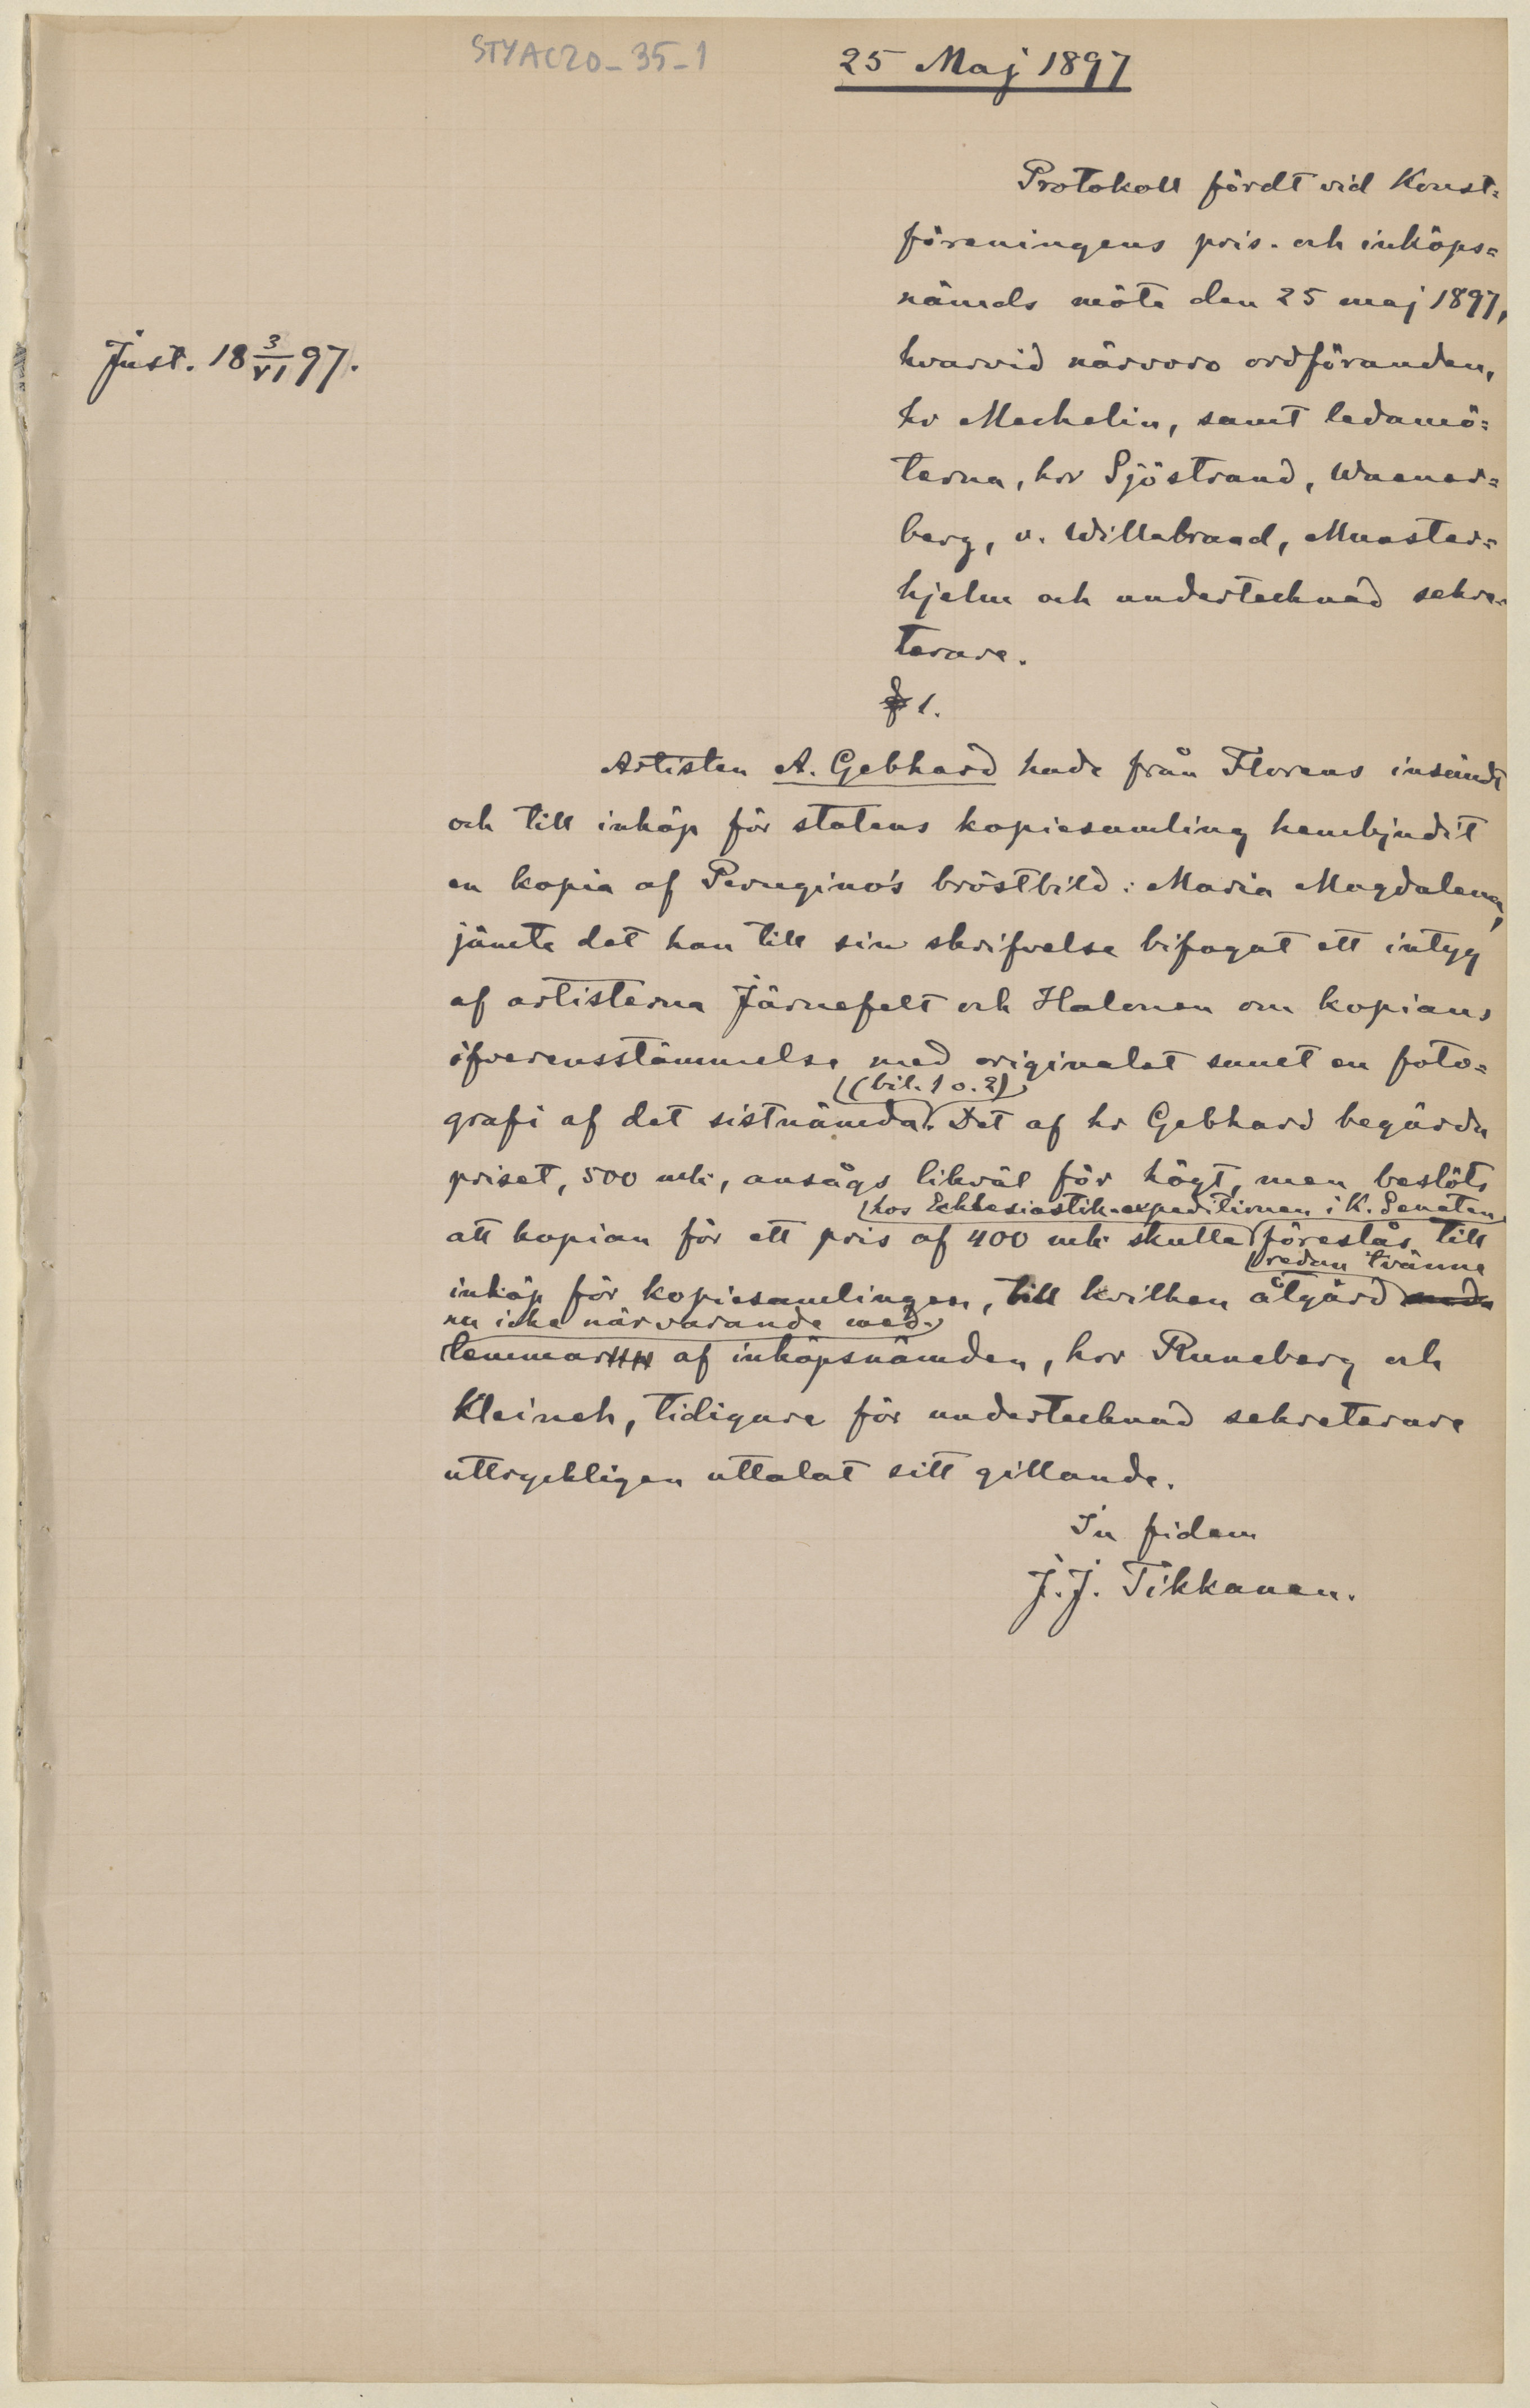 STYAC20_35_1
25 Maj 1897
Protokoll fördt vid Konst=
föreningens pris- och inköps=
nämds möte den 25 maj 1897,
hvarvid närvoro ordföranden,
hr Mechelin, samt ledamö=
terna, hrr Sjöstrand, Waener=
berg, v. Willebrand, Munster=
hjelm och undertecknad sekre-
terare.
Just. 18 3/VI 97.
§ 1.
Artisten A. Gebhard hade från Florens insändt
och till inköp för statens kopiesamling hembjudit
en kopia af Perugino's bröstbild: Maria Magdalena,
jämte det han till sin skrifvelse bifogat ett intyg
af artisterna Järnefelt och Halonen om kopians
öfverensstämmelse med originalet samt en foto=
(bil. 1 o. 2)
grafi af det sistnämda. Det af hr Gebhard begärda
priset, 500 mk, ansågs likväl för högt, men beslöts
hos Ecklesiastik-expeditionen i K. Senaten
att kopian för ett pris af 400 mk skulle föreslås till
redan tvänne
inköp för kopiesamlingen, till hvilken åtgärd
nu icke närvarande med-
lemmar af inköpsnämden, hrr Runeberg och
Kleineh, tidigare för undertecknad sekreterare
uttryckligen uttalat sitt gillande.
In fidem
J. J. Tikkanen.